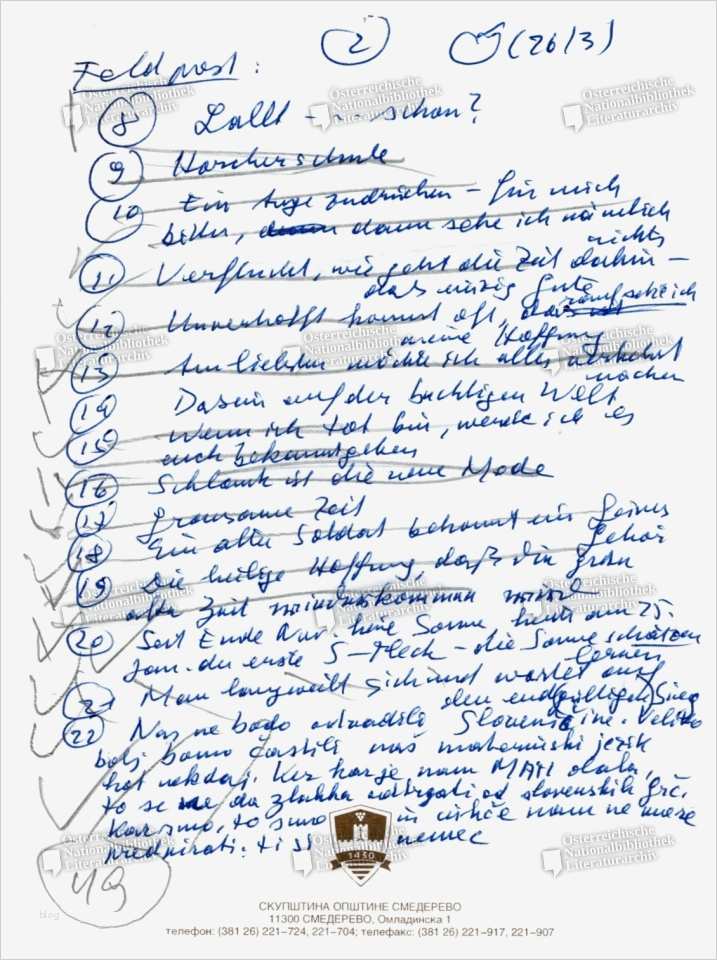 2 (26/3)
Feldpost:
8 Lallt schon?
9 Horcherschule
10 Ein Auge zudrücken – für mich
bitte, dann sehe ich nämlich
nichts
11 Verflucht, wie geht die Zeit dahin –
das einzig Gute
12 Unverhofft kommt oft, darauf setze ich
meine Hoffnung
13 Am liebsten möchte ich alles verkehrt
machen
14 Dasein auf der buckligen Welt
15 Wenn ich tot bin, werde ich es
euch bekanntgeben
16 Schlank ist die neue Mode
17 Grausame Zeit
18 Ein alter Soldat bekommt ein feines
Gehör
19 Die heilige Hoffnung, daß die
alte Zeit wiederkommen wird
20 Seit Ende Nov. keine Sonne, heute am 25.
Jan. der erste S-Fleck – die Sonne schätzen
lernen
21 Man langweilt sich und wartet auf
den endgültigen Sieg
22 Nas ne bodo odvadili Slovenščine. Veliko
bolj bomo častili naš materinski jezik
kot nekdaj. Ker kar je nam MATI dala,
to se ne da zlahka odtrgati od slovenskih src.
Kar smo, to smo in nihče nam ne more
predpisati: ti si nemec
49
1430
СКУПШТИНА ОПШТИНЕ СМЕДЕРЕВО
11300 СМЕДЕРЕВО, Омладинска 1
телефон: (381 26) 221–724, 221–704; телефакс: (381 26) 221–917, 221–907
Österreichische
Nationalbibliothek
Literaturarchiv
blog